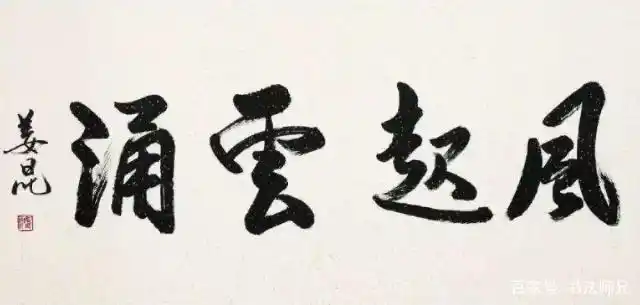 風起雲涌
姜昆
百家号/书法师兄